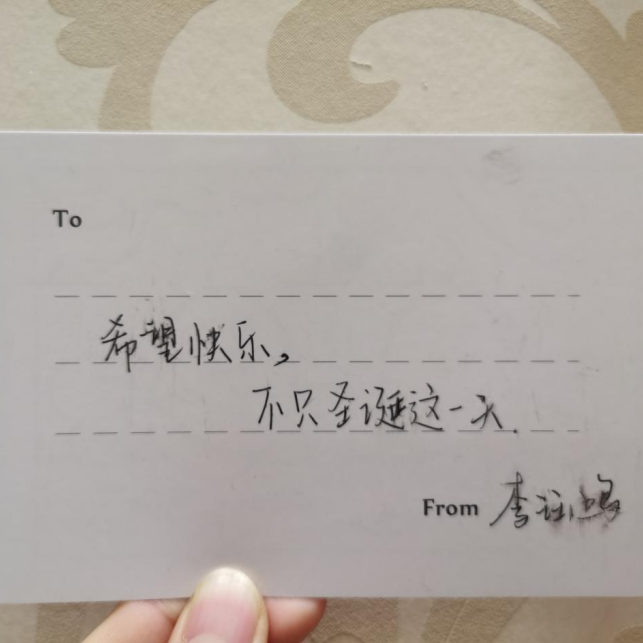 To
希望快乐,
不只圣诞这一天.
From 李